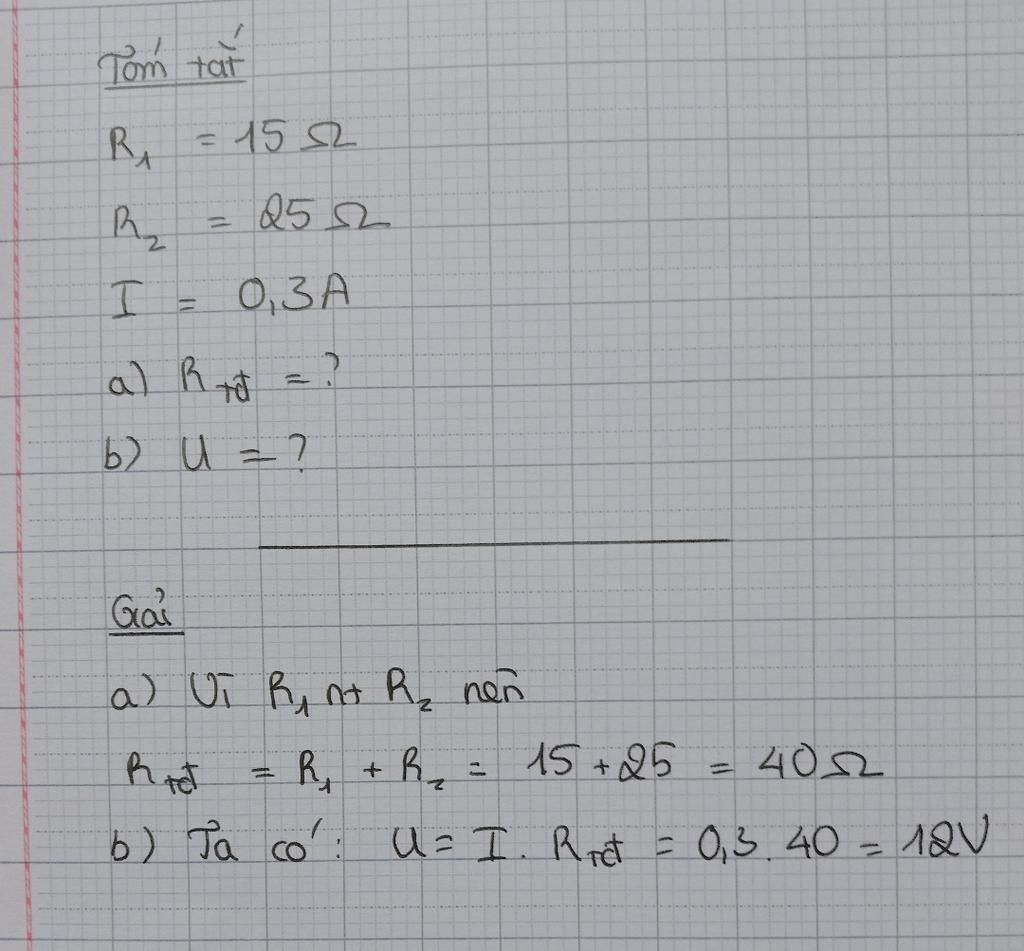 Tóm tắt
R₁ = 15 Ω
R₂ = 25 Ω
I = 0,3A
a) R tđ = ?
b) U = ?
Giải
a) Vì R₁ nt R₂ nên
R tđ = R₁ + R₂ = 15 + 25 = 40 Ω
b) Ta có: U = I. R tđ = 0,3. 40 = 12V